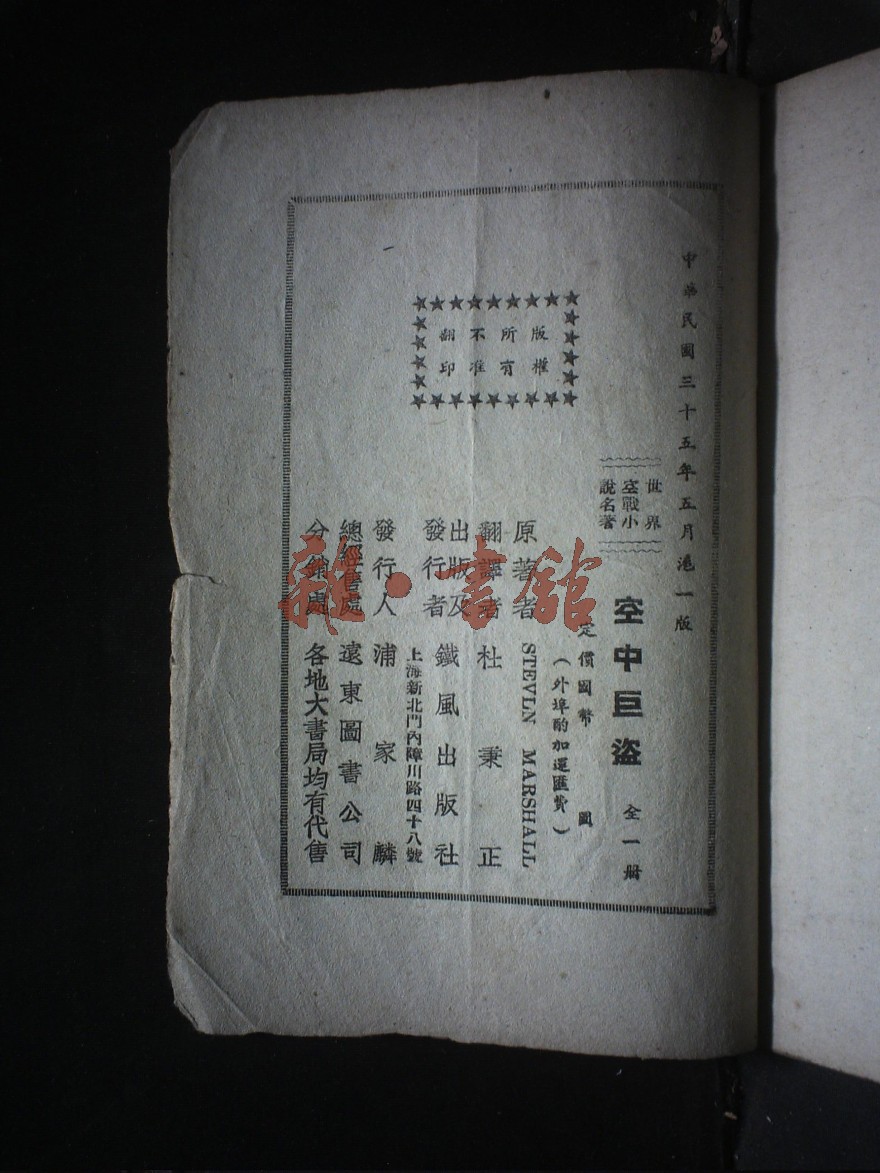 中華民國三十五年五月滬一版
世界
空戰小
說名著
空中巨盜
全一冊
定價國幣 圓
（外埠酌加運匯費）
版權
所有
不准
翻印
原著者 STEVLN MARSHALL
翻譯者 杜秉正
出版及
發行者 鐵風出版社
上海新北門內障川路四十八號
發行人 浦家麟
總經售處 遠東圖書公司
分銷處 各地大書局均有代售
雜·書館